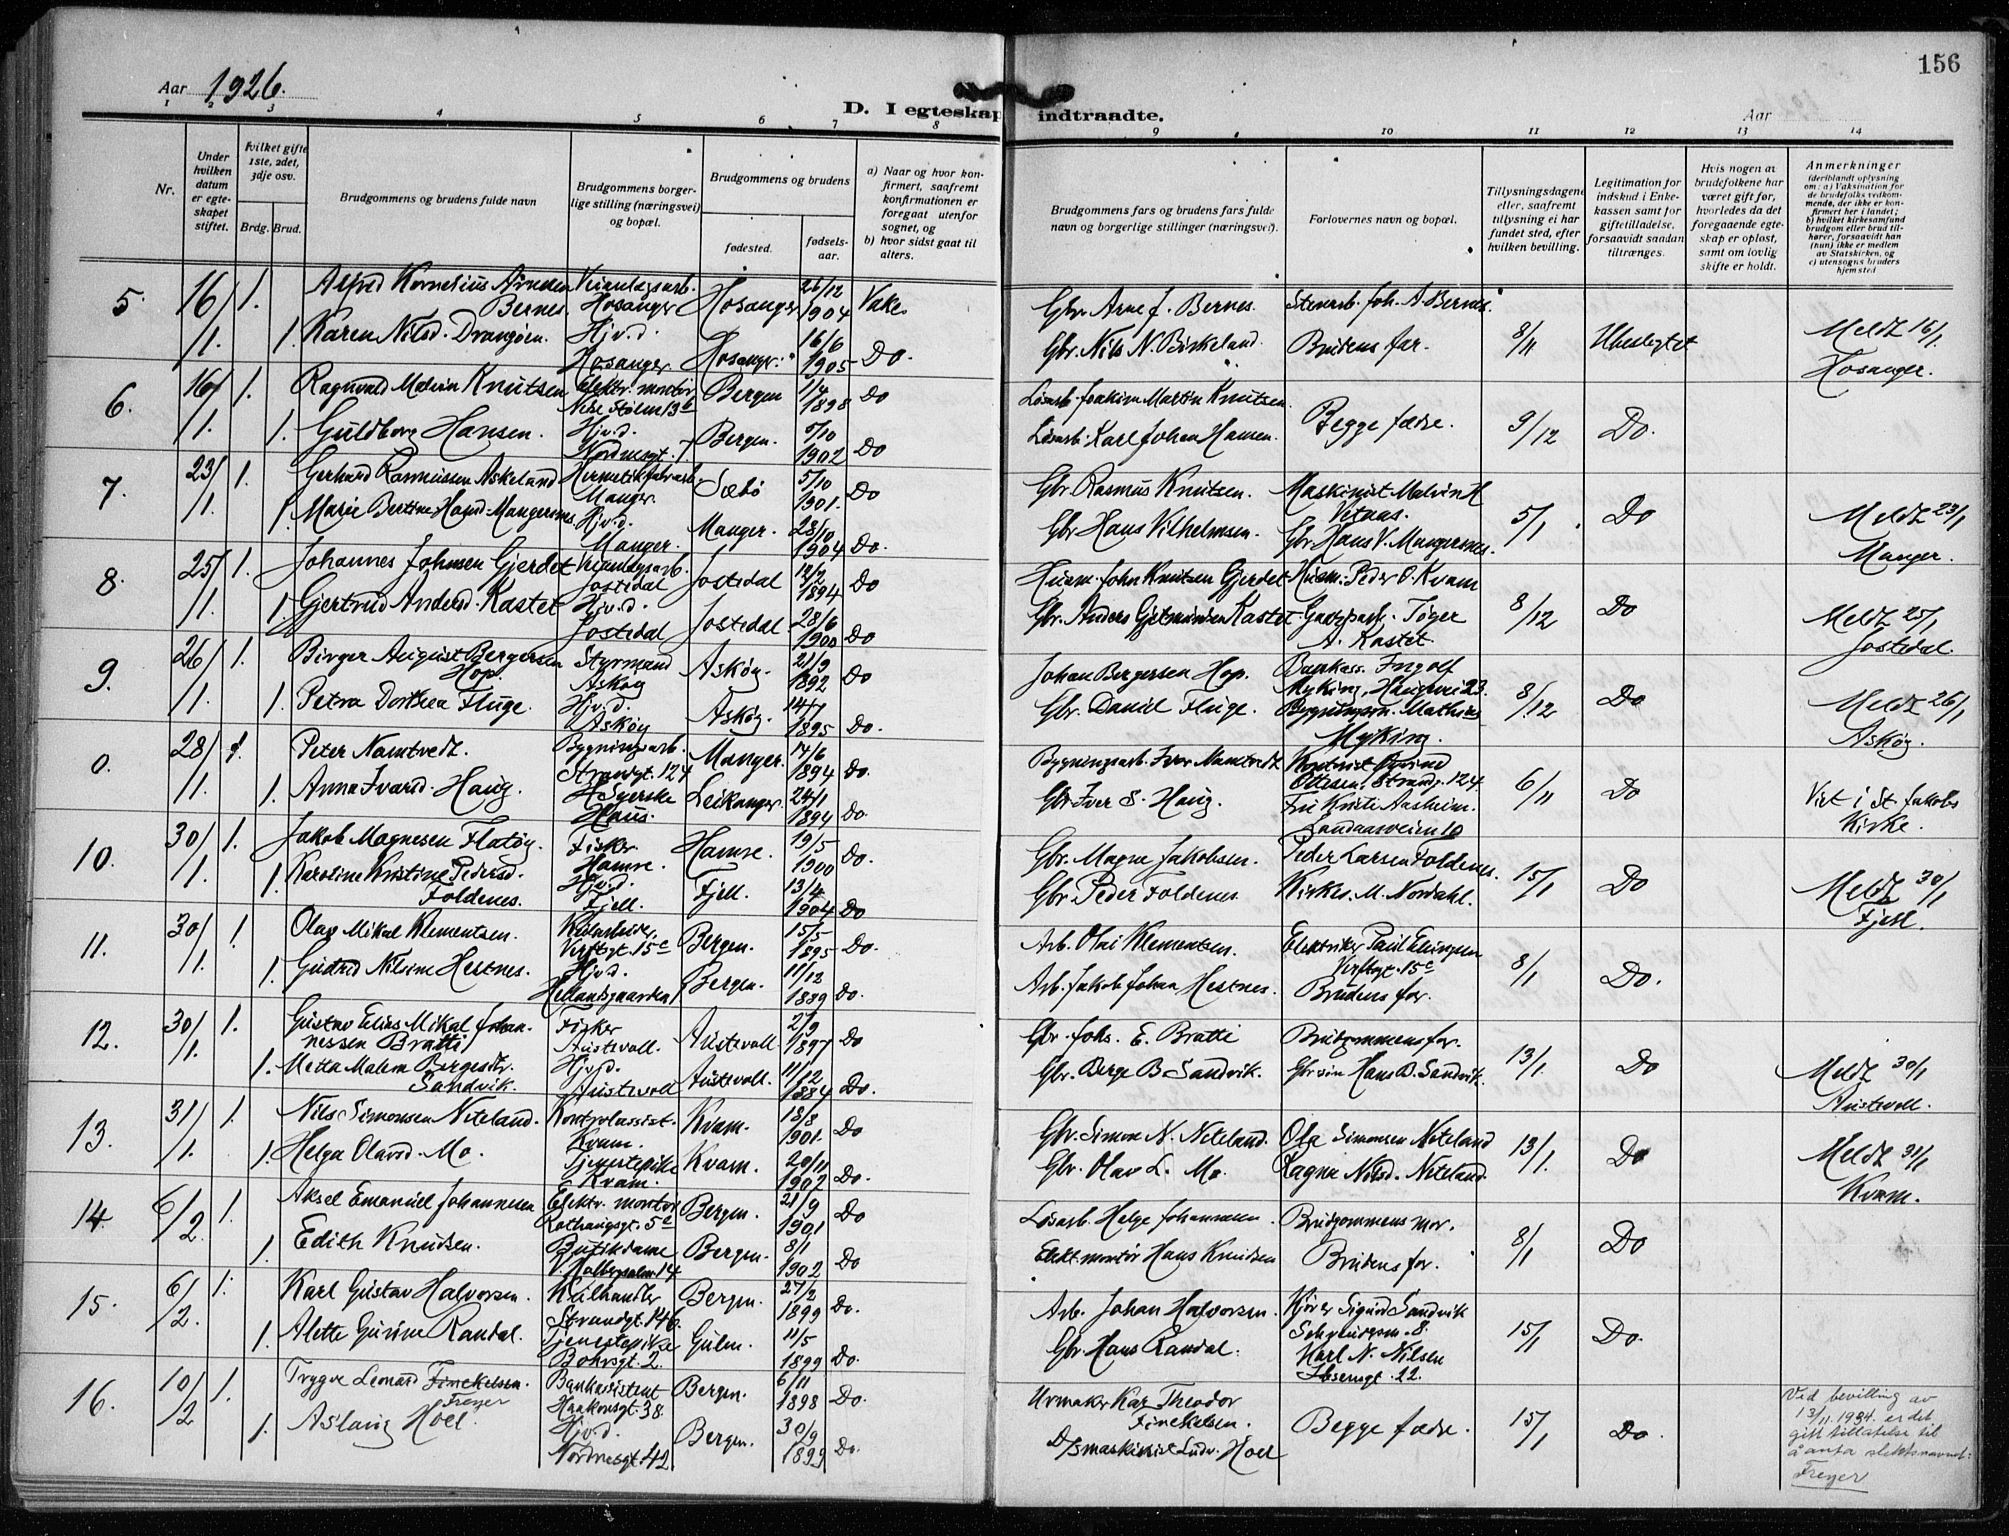 156
Aar 1926.
D. I egteskap indtraadte.
Aar
1 2 3 4 5 6 7 8 9 10 11 12 13 14
Nr.
Under hvilken datum er egteskapet stiftet.
hvilket gifte 1ste, 2det, 3dje osv.
Brdg. Brud.
Brudgommens og brudens fulde navn
Brudgommens borgerlige stilling (næringsvei) og bopæl.
Brudgommens og brudens
fødested.
fødselsaar.
a) Naar og hvor konfirmert, saafremt konfirmationen er foregaat utenfor sognet, og
b) hvor sidst gaat til alters.
Brudgommens fars og brudens fars fulde navn og borgerlige stillinger (næringsvei).
Forlovernes navn og bopæl.
Tillysningsdagene eller, saafremt tillysning ei har fundet sted, efter hvilken bevilling.
Legitimation for indskud i Enkekassen samt for giftetilladelse, forsaavidt saadan tiltrænges.
Hvis nogen av brudefolkene har været gift før, hvorledes da det foregaaende egteskap er opløst, samt om lovlig skifte er holdt.
Anmerkninger (deriblandt oplysning om: a) Vaksination for de brudefolks vedkommende, der ikke er konfirmert her i landet; b) hvilket kirkesamfund brudgom eller brud tilhører, forsaavidt han (hun) ikke er medlem av Statskirken, og c) utensogns bruders hjemsted
5. 16/1. 1. Alfred Kornelius Arnesen Bernes. Hosanger Hosanger 26/12 1904 Vake Gbr. Arne J. Bernes. Stenarb. Joh. A. Bernes. 8/11 Ubeslegtet Meldt 16/1. Hosanger.
1. Karen Nilsd. Drangøen. Hjv.d. Hosanger Hosangr. 16/6 1905 Do. Gbr. Nils N. Birkeland. Brudens far.
6. 16/1. 1. Ragnvald Malvin Knutsen Elektr. montør Bergen 11/4 1898 Do Løsarb. Joakim Martin Knutsen. Begge fædre. 9/12 Do.
1. Guldborg Hansen. Hjv.d. Nordnesgt. 7. Bergen. 5/10 1902 Do Løsarb. Karl Johan Hansen.
7. 23/1. 1. Gerhard Rasmussen Askeland Hermetikfabrarb. Manger. Sæbø 5/10 1901. Do Gbr. Rasmus Knutsen. Maskinist Malvin H Vetaas. 5/1. Do Meldt 23/1 Manger.
1. Marie Bertine Hansd. Mangersnes Hjv.d. Manger. Manger. 28/10 1904 Do. Gbr. Hans Vilhelmsen. Gbr. Hans V. Mangersnes.
8. 25/1. 1. Johannes Johnsen Gjerdet Jostedal Jostedal 12/2 1894 Do Husm. John Knutsen Gjerdet Husm. Peder O. Kvam 8/12 Do Meldt 25/1 Jostedal.
1. Gjertrud Andersd. Kastet Hjv.d. Jostedal Jostedal. 28/6 1900 Do Gbr. Anders Gjetmundsen Kastet A. Kastet
9. 26/1. 1. Birger August Bergersen Hop. Styrmand Askøy Askøy. 21/9 1892 Do Johan Bergersen Hop. Ingolf Myking, Haugevei 23. 8/12 Do Meldt 26/1 Askøy.
1. Petra Dorthea Fluge. Hjv.d. Askøy Askøy. 14/7 1895 Do. Gbr. Daniel Fluge. Mathias Myking.
0. 28/1. 1. Peter Namtvedt. Bygningsarb. Strandgt. 124 Manger. 14/6 1894 Do. Bygningsarb. Iver Namtvedt Ottesen, Strandg. 124 6/11 Do Viet i St. Jakobs Kirke.
1. Anna Ivarsd. Haug. Haus. Leikanger. 24/1 1894 Do. Gbr. Iver S. Haug. Aasheim. Landaasveien 10
10. 30/1. 1. Jakob Magnesen Flatøy. Fisker Hamre. Hamre. 19/5 1900 Do. Gbr. Magne Jakobsen. Peder Larsen Foldenes. 15/1 Do Meldt 30/1 Fjell.
1. Karoline Kristine Pedersd. Foldenes. Hjv.d. Fjell. Fjell. 13/4 1904 Do Gbr. Peder Foldenes. Kirkes. M. Nordahl.
11. 30/1. 1. Olav Mikal Klementsen. Verftsgt. 15c Bergen. 15/5 1895 Do. Arb. Olai Klementsen. Elektriker Paul Ellingsen Verftsgt. 15c 8/1 Do.
1. Gudrid Nilsine Hestnes. Hjv.d. Hellandsgaarden Bergen. 11/12 1889 Do. Arb. Jakob Johan Hestnes. Brudens far.
12. 30/1. 1. Gustav Elias Mikal Johannessen Bratti Fisker Austevoll. Austevoll 2/9 1897 Do Gbr. Johs. E. Bratti Brudgommens far. 13/1. Do Meldt 30/1 Austevoll.
1. Metta Malena Bergesdtr. Sandvik. Hjv.d. Austevoll Austevoll. 11/12 1884 Do. Gbr. Berge B Sandvik. Gbrsøn Hans B. Sandvik.
13. 31/1. 1. Nils Simonsen Neteland. Kontrolassist. Kvam. Kvam. 18/8 1901. Do Gbr. Simon N. Neteland. Ola Simonsen Neteland 13/1. Do Meldt 31/1 Kvam.
1. Helga Olavsd. Mo. Tjenestepike Kvam. Kvam. 20/11 1902 Do. Gbr. Olav L. Mo. Ragna Nilsd. Neteland.
14. 6/2. 1. Aksel Emanuel Johannesen Elektr. montør Rothaugsgt. 5c Bergen. 21/9 1901 Do Løsarb. Helge Johannesen. Brudgommens mor. 8/1 Do
1. Edith Knudsen. Butikdame V. Holbergsalm. 14 Bergen. 8/1 1902 Do Elekt. montør Hans Knudsen Brudens far.
15. 6/2. 1. Karl Gustav Halvorsen. Kulhandler Strandgt. 146. Bergen. 27/2 1899 Do. Arb. Johan Halvorsen. Kjører Sigurd Sandvik 8. 15/1 Do.
1. Alette Gurine Randal. Tjenestepike Bohrsgt. 2. Gulen. 11/5 1899 Do. Gbr. Hans Randal. Karl N. Nilsen Ibsensgt. 22.
16. 10/2 1. Trygve Leonard Finckelsen. Freyer Bankassistent Haakonsgt. 38. Bergen. 6/11 1898 Do. Urmaker Kar Theodor Finckelsen. Begge fædre. 15/1 Do. Ved bevilling av 13/11. 1934. er det gitt tillatelse til å anta slektsnavnet: Freyer
1. Aslaug Hoel. Hjv.d. Nordnesgt. 42 Bergen. 30/9 1899 Do. D/Smaskinist Ludv. Hoel